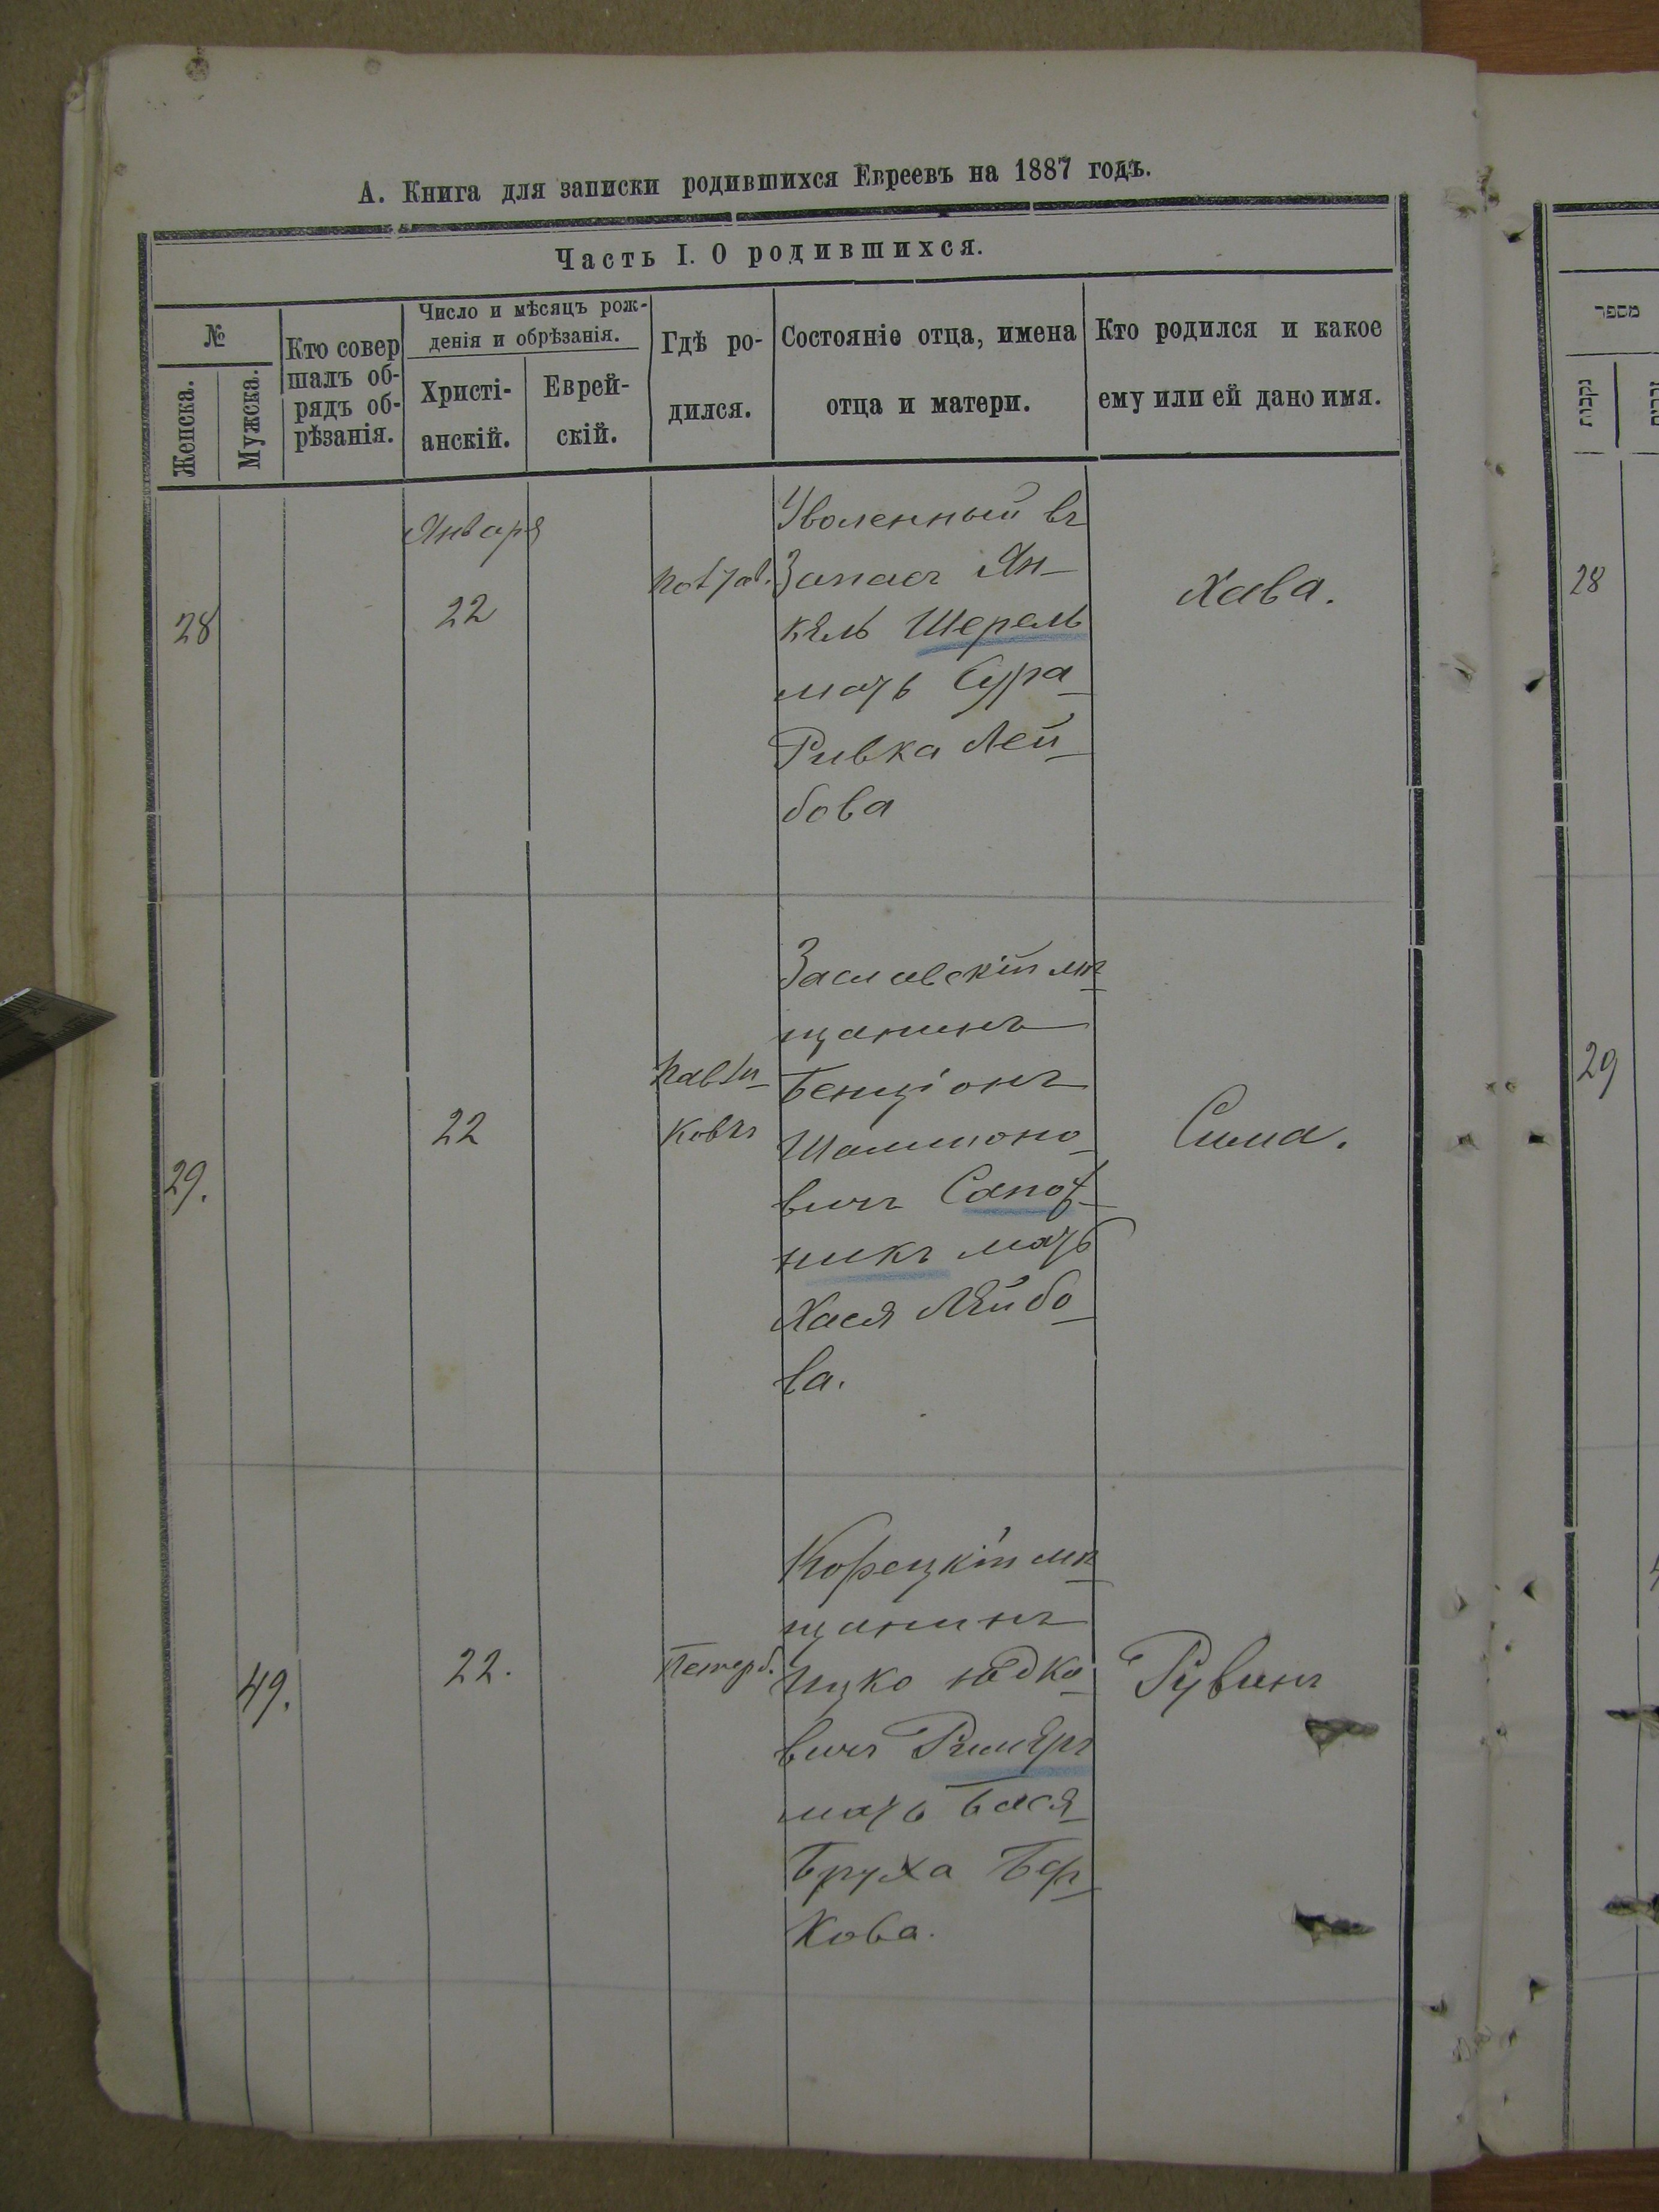 А. Книга для записки родившихся Евреевъ на 1887 годъ.
Часть I. О родившихся.
№
Женска.
Мужска.
Кто совер
шалъ об-
рядъ об-
рѣзанія.
Число и мѣсяцъ рож-
денія и обрѣзанія.
Христі-
анскій.
Еврей-
скій.
Гдѣ ро-
дился.
Состояніе отца, имена
отца и матери.
Кто родился и какое
ему или ей дано имя.
28
Января
22
Уволенный въ
Запасъ Ян-
кель Шерель
мать Сура-
Ривка Лей-
бова
Хава.
29.
22
Заславскій мѣ-
щанинъ
Бенціонъ
Шаммоно-
вичъ Сапож-
никъ мать
Хася Лейбо-
ва.
Сима.
49.
22.
Петерб.
Корецкій мѣ-
щанинъ
Ицко Юдко-
вичъРимеръ
мать Бася-
Бруха Бер-
кова.
Рувинъ
מספר
נקבות
28
29